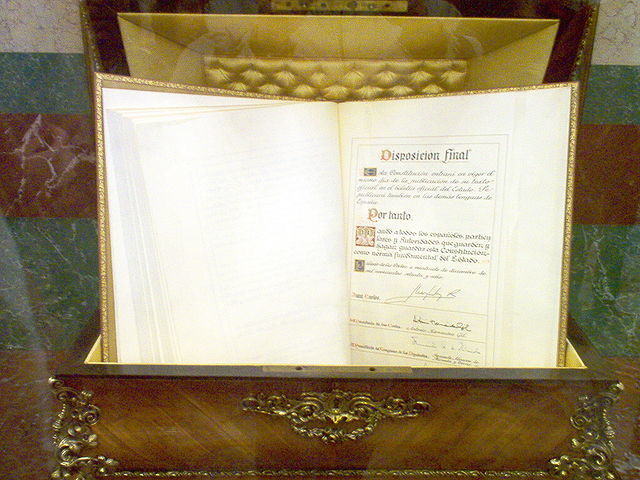 Disposicion final
Esta Constitución entrará en vigor el
mismo día de la publicación de su texto
oficial en el boletín oficial del Estado. Se
publicará también en las demás lenguas de
España.
Por tanto
Mando a todos los españoles, particu
lares y Autoridades que guarden y
hagan guardar esta Constitución
como norma fundamental del Estado.
Palacio de las Cortes a veintisiete de diciembre de
mil novecientos setenta y ocho.
Juan Carlos
El Presidente de las Cortes
El Presidente del Congreso de los Diputados